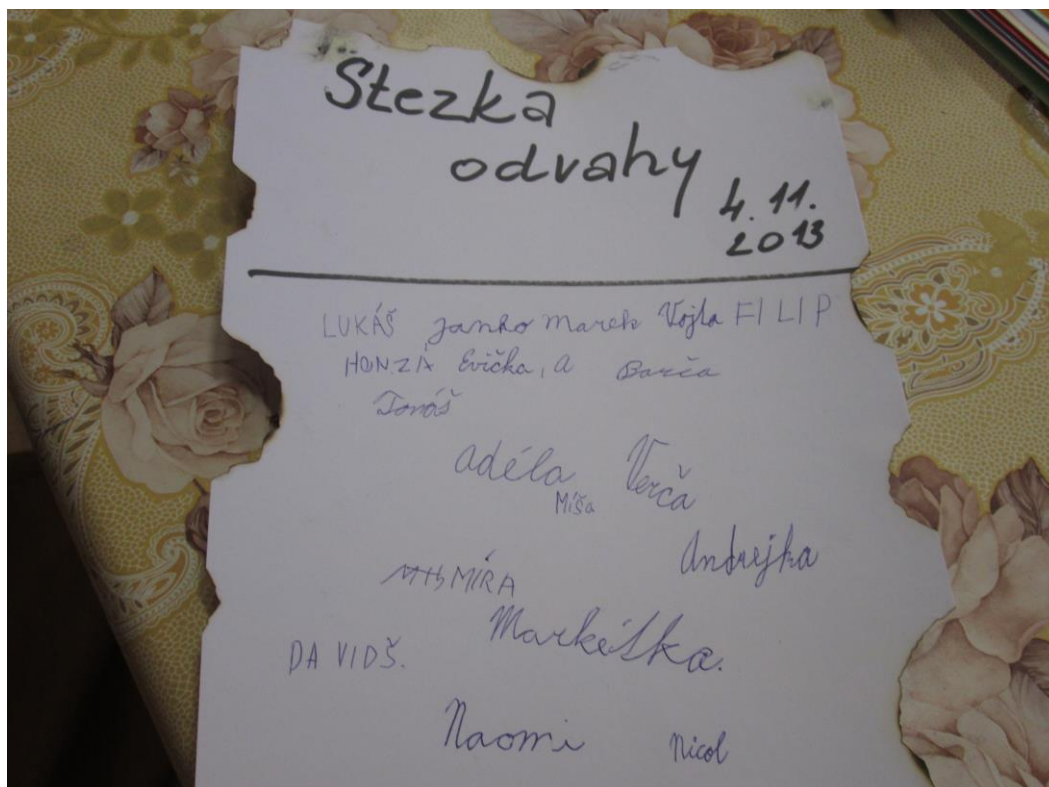 Stezka
odvahy
4. 11.
2013
LUKÁŠ Janko Marek Vojta FILIP
HONZA Evička, A Barča
Tomáš
Adéla Verča
Míša
Andrejka
MÍRA
Markétka.
DAVID Š.
Naomi Nicol